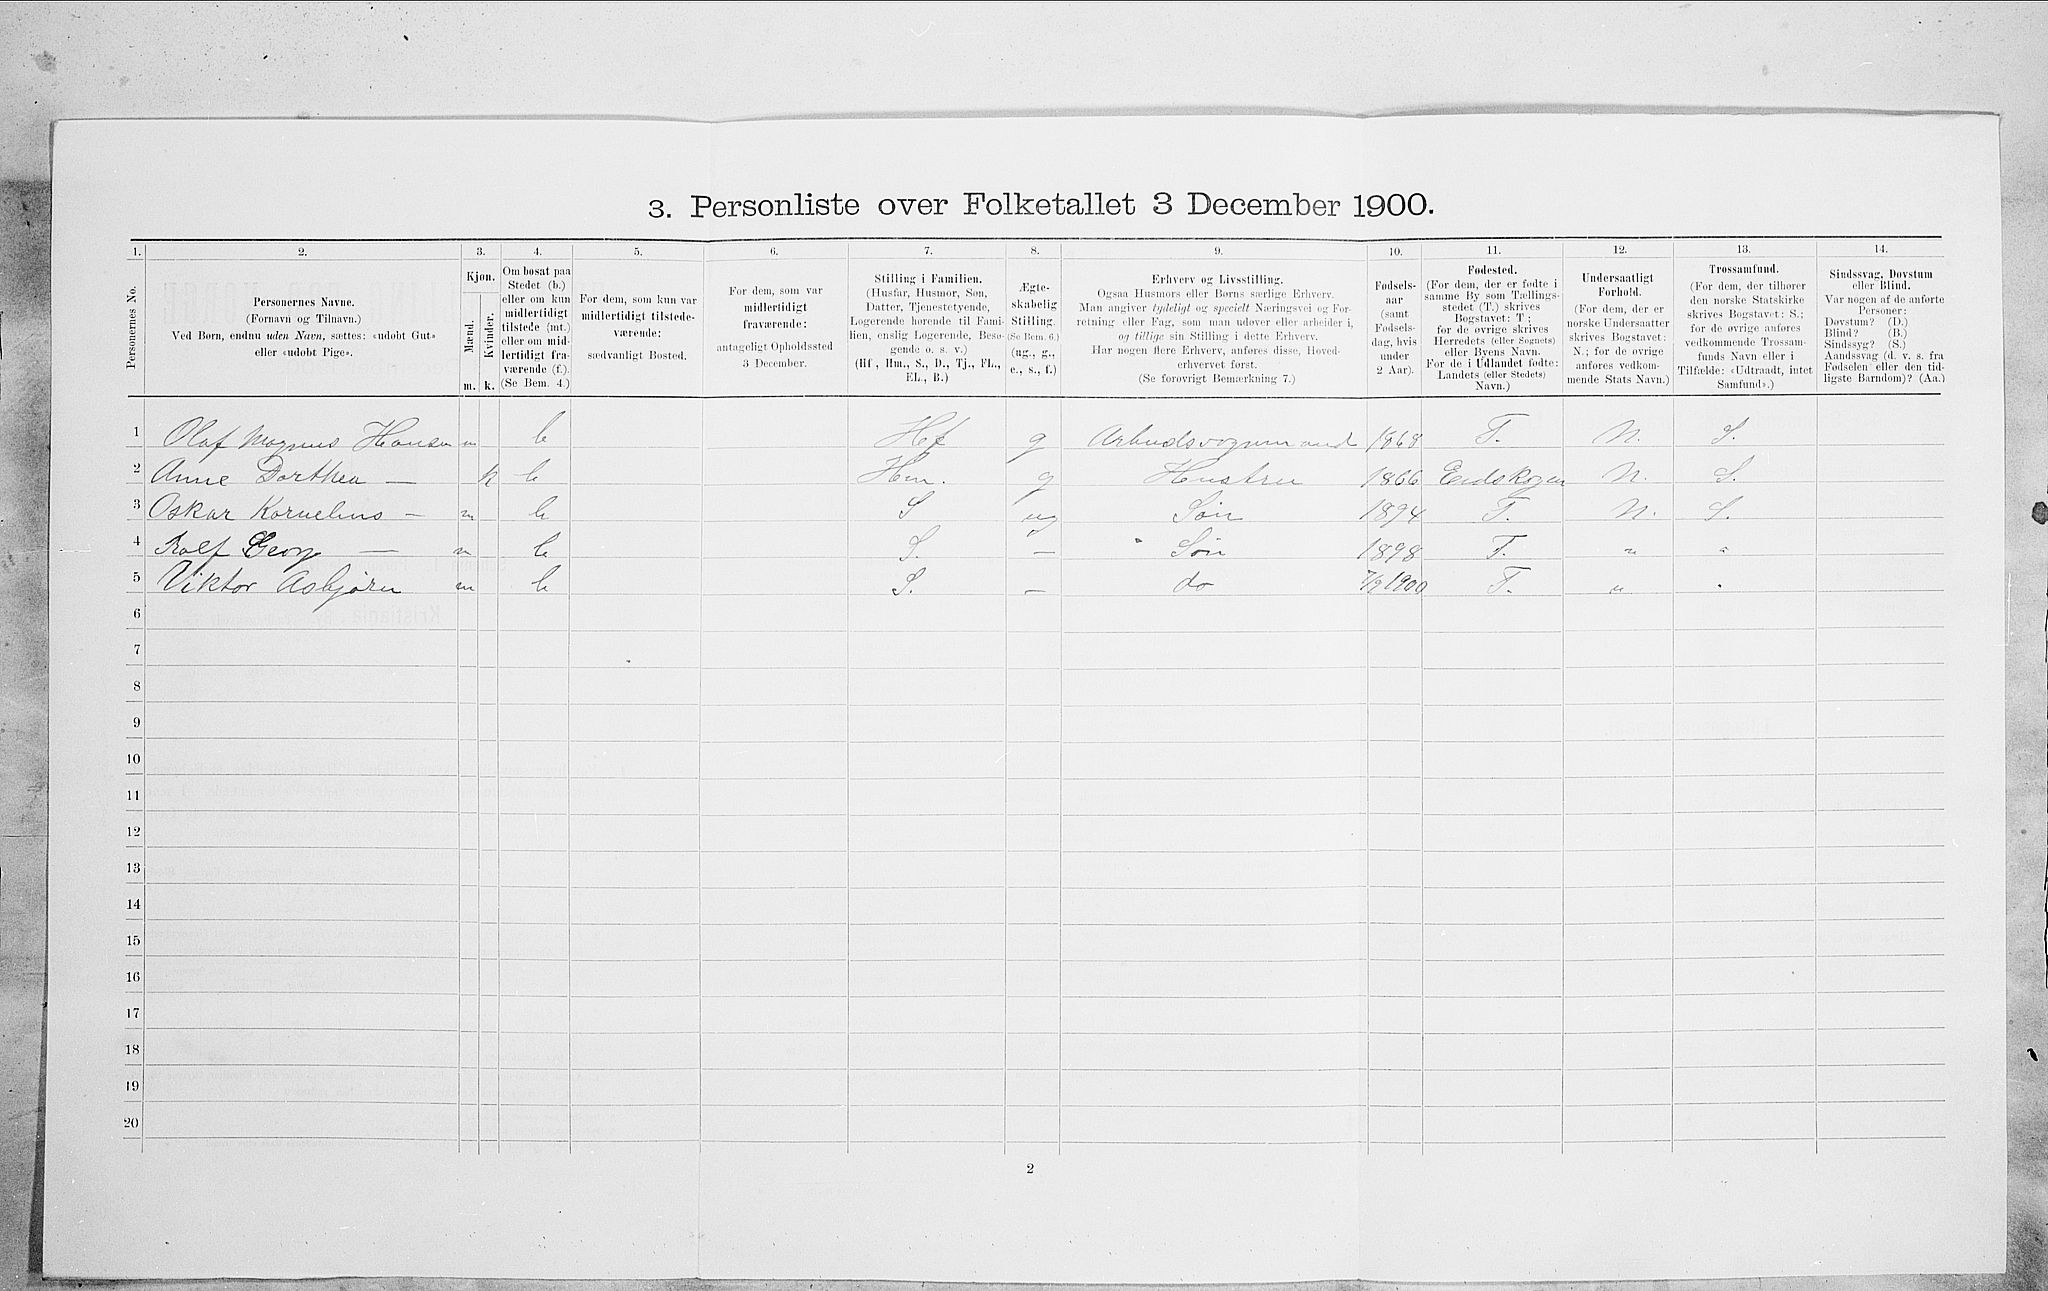 3. Personliste over Folketallet 3 December 1900.
1. 2. 3. 4. 5. 6. 7. 8. 9. 10. 11. 12. 13. 14.
Personernes No.
Personernes Navne.
(Fornavn og Tilnavn.)
Ved Børn, endnu uden Navn, sættes: «udøbt Gut»
eller «udøbt Pige».
Kjøn.
Mænd.
Kvinder.
m. k.
Om bosat paa
Stedet (b.)
eller om kun
midlertidigt
tilstede (mt.)
eller om mid-
lertidigt fra-
værende (f.).
(Se Bem. 4.)
For dem, som kun var
midlertidigt tilstede-
værende:
sædvanligt Bosted.
For dem, som var
midlertidigt
fraværende:
antageligt Opholdssted
3 December.
Stilling i Familien.
(Husfar, Husmor, Søn,
Datter, Tjenestetyende,
Logerende hørende til Fami-
lien, enslig Logerende, Besø-
gende o. s. v.)
(Hf., Hm., S., D., Tj., FL.,
EL., B.)
Ægte-
skabelig
Stilling.
(Se Bem. 6.)
(ug., g.,
e., s., f.)
Erhverv og Livsstilling.
Ogsaa Husmors eller Børns særlige Erhverv.
Man angiver tydeligt og specielt Næringsvei og For-
retning eller Fag, som man udøver eller arbeider i,
og tillige sin Stilling i dette Erhverv.
Har nogen flere Erhverv, anføres disse, Hoved-
erhvervet først.
(Se forøvrigt Bemærkning 7.)
Fødsels-
aar
(samt
Fødsels-
dag, hvis
under
2 Aar).
Fødested.
(For dem, der er fødte i
samme By som Tællings-
stedet (T.) skrives
Bogstavet: T;
for de øvrige skrives
Herredets (eller Sognets)
eller Byens Navn.
For de i Udlandet fødte:
Landets (eller Stedets)
Navn.)
Undersaatligt
Forhold.
(For dem, der er
norske Undersaatter
skrives Bogstavet:
N.; for de øvrige
anføres vedkom-
mende Stats Navn.)
Trossamfund.
(For dem, der tilhører
den norske Statskirke
skrives Bogstavet: S.;
for de øvrige anføres
vedkommende Trossam-
funds Navn eller i
Tilfælde: «Udtraadt, intet
Samfund».)
Sindssvag, Døvstum
eller Blind.
Var nogen af de anførte
Personer:
Døvstum? (D.)
Blind? (B.)
Sindssyg? (S.)
Aandssvag (d. v. s. fra
Fødselen eller den tid-
ligste Barndom)? (Aa.)
1 Olaf Magnus Hansen m b Hf g Arbeidsvognmand 1868 T. N. S.
2 Anne Dorthea — k b Hm. g Hustru 1866 Eidskogen N. S.
3 Oskar Kornelius — m b S ug Søn 1894 T. N. S.
4 Rolf Georg — m b S. — " Søn 1898 T. " "
5 Viktor Asbjørn m b S. — do 7/9 1900 T. " "
6
7
8
9
10
11
12
13
14
15
16
17
18
19
20
2